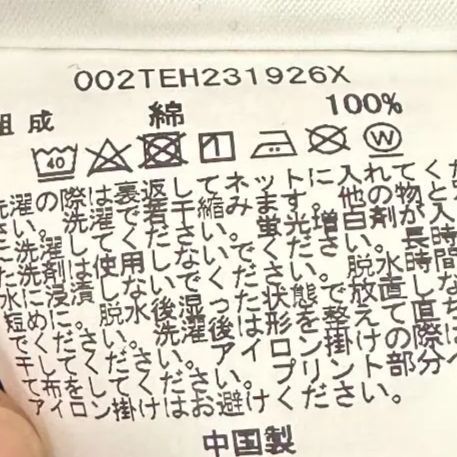 002TEH231926X
組成 綿 100%
40 W
洗濯の際は裏返してネットに入れてくだ
さい。洗濯で若干縮みます。他の物と
に洗濯してください。蛍光増白剤が入
た洗剤は使用しないでください。長時
水に浸漬しないでください。脱水時間
短めに。脱水後湿った状態で放置しな
でください。洗濯後は形を整えて直ち
干してください。アイロン掛けの際は
て布をしてください。プリント部分へ
アイロン掛けはお避けください。
中国製